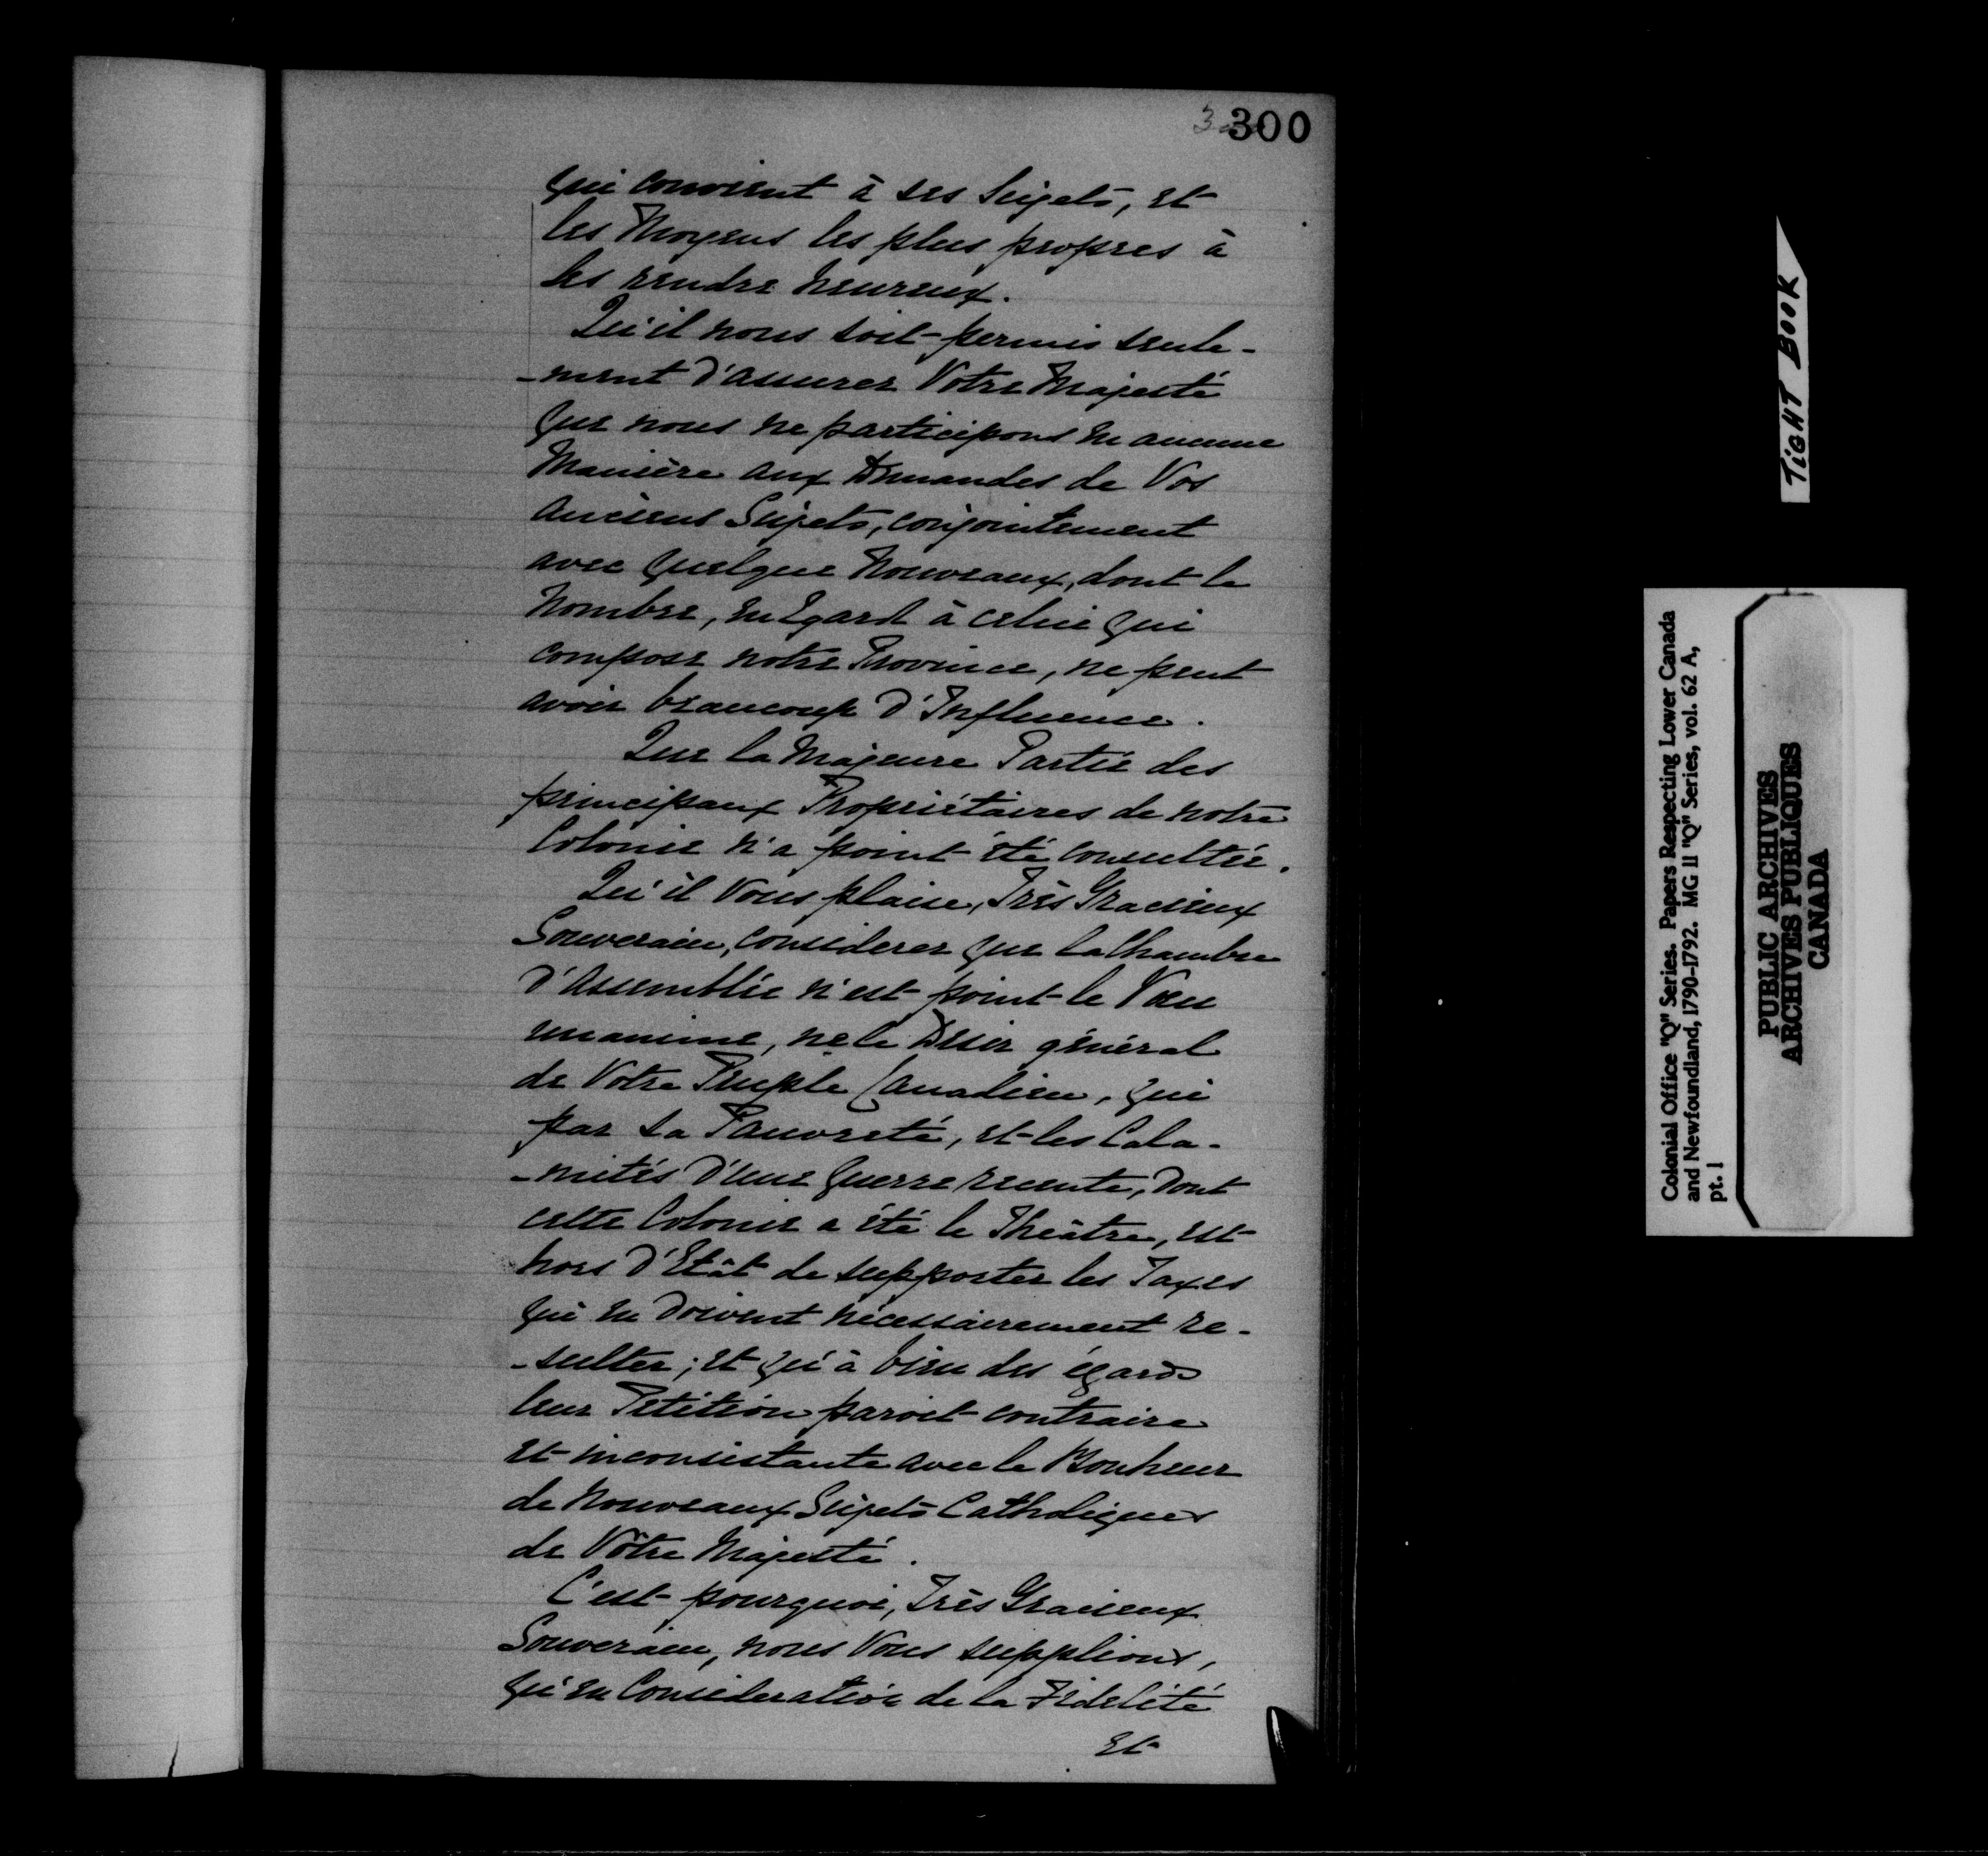 300
qui convient à ses Sujets, et
les Moyens les plus propres à
les rendre heureux.
Qu'il nous soit permis seule-
-ment d'assurer Votre Majesté
que nous ne participons en aucune
Manière aux Demandes de Vos
anciens Sujets, conjointement
avec quelque Nouveaux, dont le
Nombre, en Egard à celui qui
compose notre Province, ne peut
avoir beaucoup d'Influence.
Que la Majeure Partie des
principaux Propriétaires de notre
Colonie n'a point été consultée.
Qu'il Vous plaise, Très Gracieux
Souverain, considerer que la Chambre
d'Assemblée n'est point le Vœu
unanime, ne le Desir général
de Votre Peuple Canadien, qui
par sa Pauvreté, et les Cala-
-mités d'une guerre recente, dont
cette Colonie a été le Théâtre, est
hors d'Etât de supporter les Taxes
qui en doivent nécessairement re-
-sulter; et qu'à bien des égards
leur Petition paroit contraire
et inconsistante avec le Bonheur
de Nouveaux Sujets Catholiques
de Vôtre Majesté.
C'est pourquoi, Très Gracieux
Souverain, nous Vous supplions,
qu'en Consideration de la Fidelité
et
TIGHT BOOK
Colonial Office "Q" Series. Papers Respecting Lower Canada
and Newfoundland, 1790-1792. MG 11 "Q" Series, vol. 62 A,
pt. 1
PUBLIC ARCHIVES
ARCHIVES PUBLIQUES
CANADA